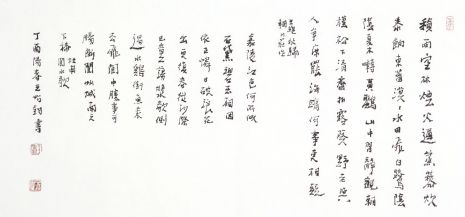 積雨空林煙火遲蒸藜炊
黍餉東菑漠漠水田飛白鷺陰
陰夏木囀黃鸝山中習靜觀朝
槿松下清齋折露葵野老與
人爭席罷海鷗何事更相疑
王維積雨
輞川莊作
嘉陵江色何所似
石黛碧玉相因
依正憐日破浪花
出更復春從沙際
歸巴童蕩槳欹側
過水雞銜魚來
去飛閬中勝事可
腸斷閬州城南天
下稀 杜甫閬水歌
丁酉陽春書